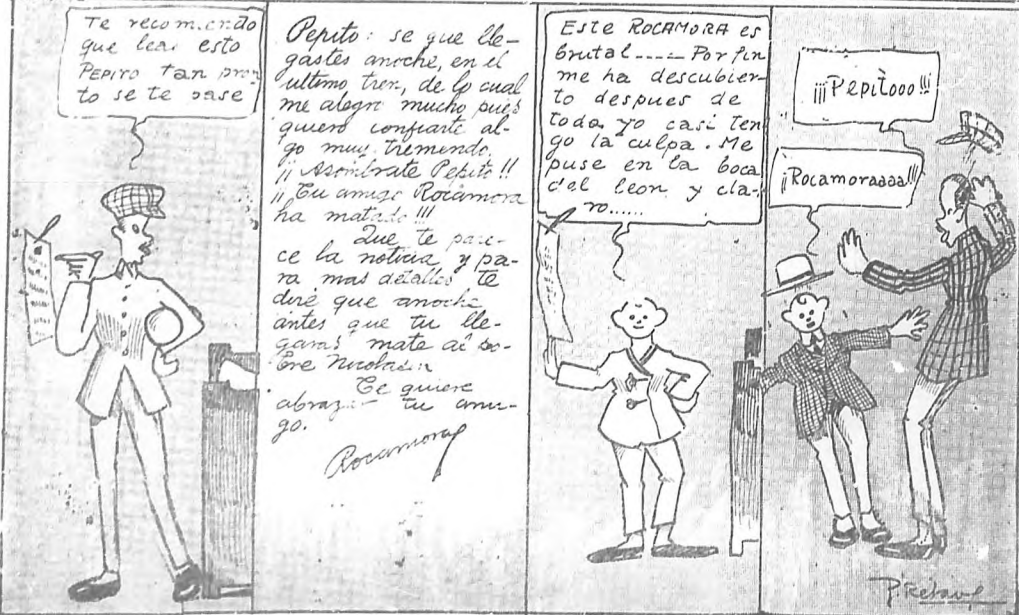 Te recomiendo
que leas esto
PEPITO tan pron
to se te pase
Pepito: se que lle-
gastes anoche, en el
ultimo tren, de lo cual
me alegro mucho pués
quiero confiarte al-
go muy tremendo.
¡¡ Asómbrate Pepito !!
¡¡ Tu amigo Rocamora
ha matado !!!
Que te pare-
ce la noticia y pa-
ra mas detalles te
diré que anoche
antes que tu lle-
garas mate al po-
bre Nicolas
Te quiere
abrazar tu ami-
go.
Rocamora
Este ROCAMORA es
brutal---- Por fin
me ha descubier-
to despues de
todo, yo casi ten
go la culpa. Me
puse en la boca
del leon y cla-
ro......
¡¡¡Pepitooo!!!
¡Rocamoraaaa!!!